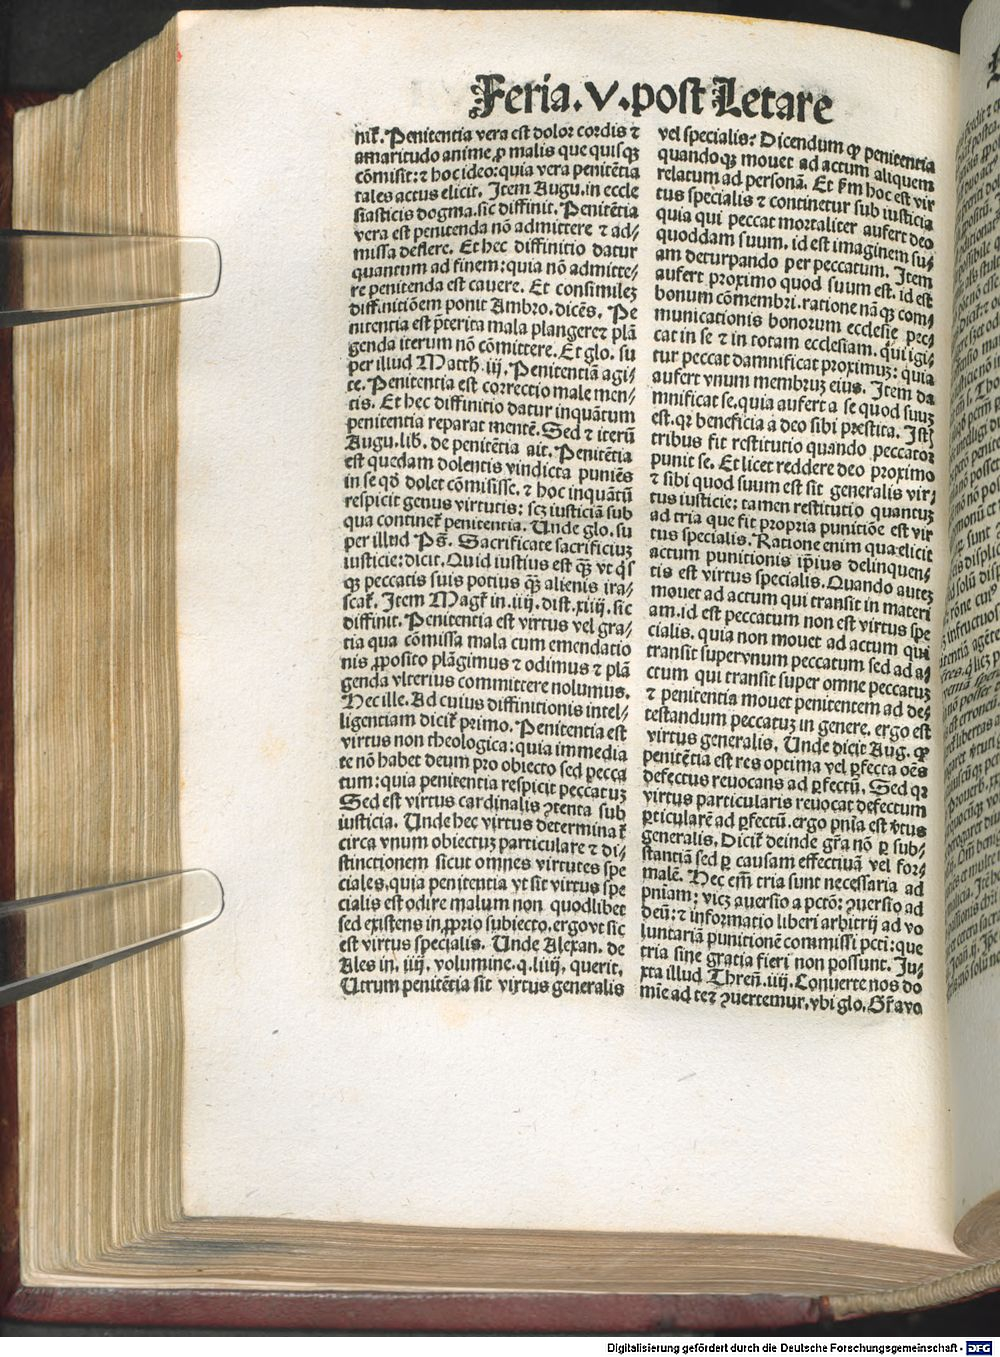 Feria.V.post Letare
nik̄. Penitentia vera est dolor cordis ⁊
amaritudo anime ꝓ malis que quisqꝫ
cōmisit: ⁊ hoc ideo: quia vera penitētia
tales actus elicit. Item Augu. in eccle
siasticis dogma. sic diffinit. Penitētia
vera est penitenda nō admittere ⁊ ad⸗
missa deflere. Et hec diffinitio datur
quantum ad finem: quia nō admitte⸗
re penitenda est cauere. Et consimileꝫ
diffinitiōem ponit Ambro. dicēs. Pe
nitentia est p̄terita mala plangere ⁊ plā
genda iterum nō cōmittere. Et glo. su
per illud Matth. iij. Penitentiā agi⸗
te. Penitentia est correctio male men⸗
tis. Et hec diffinitio datur inquātum
penitentia reparat mentē. Sed ⁊ iterū
Augu. lib. de penitētia ait. Penitētia
est quedam dolentis vindicta puniēs
in se qđ dolet cōmisisse. ⁊ hoc inquātū
respicit genus virtutis: scꝫ iusticiā sub
qua continet̄ penitentia. Unde glo. su
per illud Ps̄. Sacrificate sacrificiuꝫ
iusticie: dicit. Quid iustius est qꝫ̄ vt q̇s
qꝫ peccatis suis potius qꝫ̄ alienis ira⸗
scat̄. Item Magr̄ in. iiij. dist. xiiij. sic
diffinit. Penitentia est virtus vel gra⸗
tia qua cōmissa mala cum emendatio
nis ꝓposito plāgimus ⁊ odimus ⁊ plā
genda vlterius committere nolumus.
Hec ille. Ad cuius diffinitionis intel⸗
ligentiam dicit̄ primo. Penitentia est
virtus non theologica: quia immedia
te nō habet deum pro obiecto sed pecca
tum: quia penitentia respicit peccatuꝫ
Sed est virtus cardinalis ꝯtenta sub
iusticia. Unde hec virtus determinat̄
circa vnum obiectuꝫ particulare ⁊ di⸗
stinctionem sicut omnes virtutes spe
ciales. quia penitentia vt sit virtus spe
cialis est odire malum non quodlibet
sed existens in ꝓprio subiecto. ergo vt sic
est virtus specialis. Unde Alexan. de
Ales in. iiij. volumine. q. liiij. querit.
Utrum penitētia sit virtus generalis
vel specialis? Dicendum ꝙ penitentia
quandoqꝫ mouet ad actum aliquem
relatum ad personā. Et s̄m hoc est vir
tus specialis ⁊ continetur sub iusticia
quia qui peccat mortaliter aufert deo
quoddam suum. id est imaginem su⸗
am deturpando per peccatum. Item
aufert proximo quod suum est. id est
bonum cōmembri. ratione nāqꝫ com⸗
municationis bonorum ecclesie pec⸗
cat in se ⁊ in totam ecclesiam. qui igi⸗
tur peccat damnificat proximuꝫ: quia
aufert vnum membruꝫ eius. Item da
mnificat se. quia aufert a se quod suuꝫ
est. qꝛ beneficia a deo sibi prestita. Ist̄
tribus fit restitutio quando peccator
punit se. Et licet reddere deo proximo
⁊ sibi quod suum est sit generalis vir⸗
tus iusticie: tamen restitutio quantuꝫ
ad tria que fit propria punitiōe est vir
tus specialis. Ratione enim qua elicit
actum punitionis ip̄ius delinquen⸗
tis est virtus specialis. Quando auteꝫ
mouet ad actum qui transit in materi
am. id est peccatum non est virtus spe
cialis. quia non mouet ad actum qui
transit super vnum peccatum sed ad a⸗
ctum qui transit super omne peccatuꝫ
⁊ penitentia mouet penitentem ad de⸗
testandum peccatuꝫ in genere. ergo est
virtus generalis. Unde dicit Aug. ꝙ
penitētia est res optima vel ꝑfecta oēs
defectus reuocans ad ꝑfectū. Sed qꝛ
virtus particularis reuocat defectum
ꝑticularē ad ꝑfectū. ergo pn̄ia est v̄tus
generalis. Dicit̄ deinde gr̄a nō ꝑ sub⸗
stantiā sed ꝑ causam effectiuā vel for⸗
malē. Hec em̄ tria sunt necessaria ad
pn̄iam: vicꝫ auersio a pctō: ꝯuersio ad
deū: ⁊ informatio liberi arbitrij ad vo
luntariā punitionē commissi pcti: que
tria sine gratia fieri non possunt. Ju⸗
xta illud Thren̄. iiij. Conuerte nos do
mīe ad te ⁊ ꝯuertemur. vbi glo. Gr̄a vo
Digitalisierung gefördert durch die Deutsche Forschungsgemeinschaft - DFG